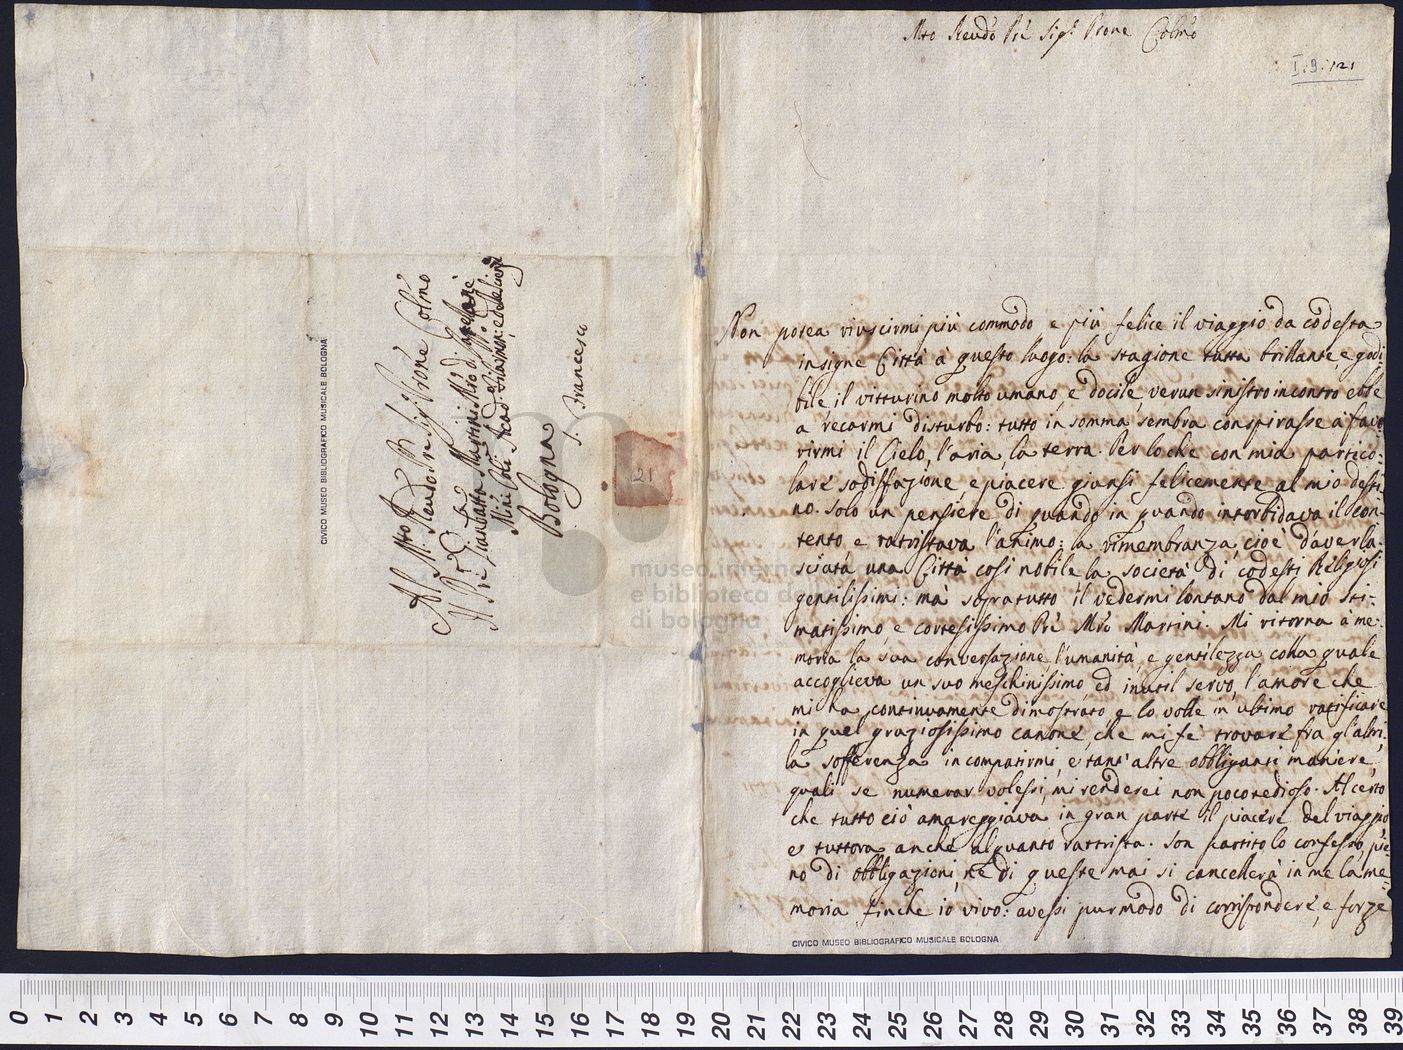 Al M.to
Rev.do P.re Sig.r P.rone Col.mo
Il P.re Giambatta Martini M.ro di Cap.
Min.i Con.li Acad.co Filarmo: e delle Scienze
Bologna S. Francesco
CIVICO MUSEO BIBLIOGRAFICO MUSICALE BOLOGNA
121
museo internazionale
e biblioteca della musica
di bologna
Mto Revdo Prè Sigr Prone Colmo
I.9.121
Non potea riuscirmi più commodo e più felice il viaggio da codesta
insigne Città à questo luogo: la stagione tutta brillante, e godi
bile, il vitturino molto umano, e docile, verun sinistro incontro ebbe
a recarmi disturbo: tutto in somma sembra conspirasse a favo
rirmi il Cielo, l'aria, la terra. Per lo che con mia partico-
lare sodisfazione, e piacere giunsi felicemente al mio desti
no. Solo un pensiere di quando in quando intorbidava il con
tento, e rattristava l'animo: la rimembranza, cioè d'aver la-
sciata una Città così nobile la società di codesti Religiosi
gentilissimi: mà sopratutto il vedermi lontano dal mio sti-
matissimo, e cortesissimo Prè Mrò Martini. Mi ritorna à me-
moria la sua conversazione, l'umanità, e gentilezza colla quale
accoglieva un suo meschinissimo, ed inutil servo, l'amore che
mi ha continuamente dimostrato e lo volle in ultimo ratificare
in quel graziosissimo canone, che mi fè trovare fra gl'altri,
la sofferenza in compatirmi, e tant'altre obbliganti maniere,
quali se numerar volessi, mi renderei non poco tedioso. Al certo
che tutto ciò amareggiava in gran parte il piacere del viaggio
e tuttora anche alquanto rattrista. Son partito lo confesso, pie-
no di obbligazioni, nè di queste mai si cancellerà in me la me-
moria finche io vivo: avessi pur modo di corrispondere, e forze
CIVICO MUSEO BIBLIOGRAFICO MUSICALE BOLOGNA
0 1 2 3 4 5 6 7 8 9 10 11 12 13 14 15 16 17 18 19 20 21 22 23 24 25 26 27 28 29 30 31 32 33 34 35 36 37 38 39